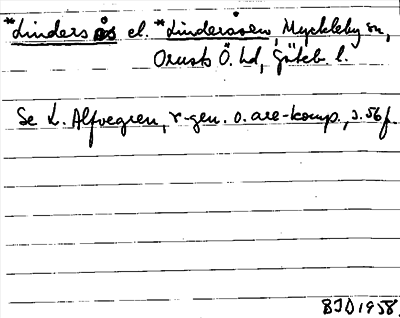 *Linders ås el. *Lindersåsen, Myckleby sn,
Orusts Ö. hd, Göteb. l.
Se L. Alfvegren, r-gen. o. are-komp., s. 56 f.
BJD 1958.